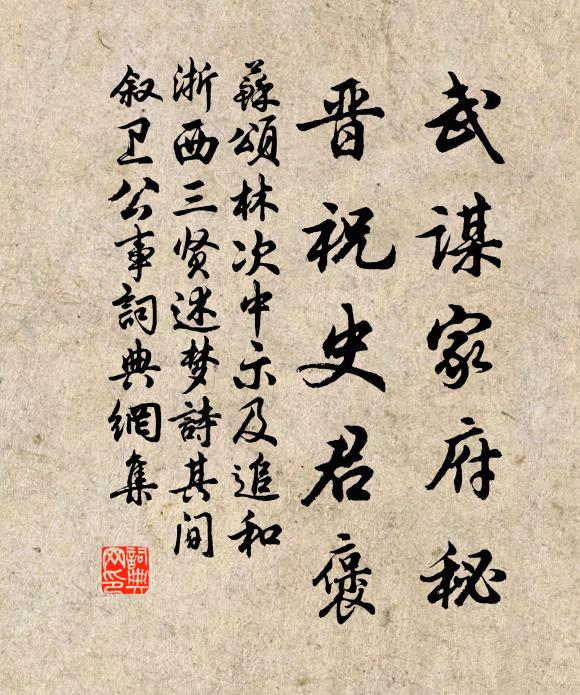 武谋家府秘
晋祝史君褒
蘇頌林次中示及追和
浙西三贤述梦詩其间
叙卫公事詞典網集
詞典网印